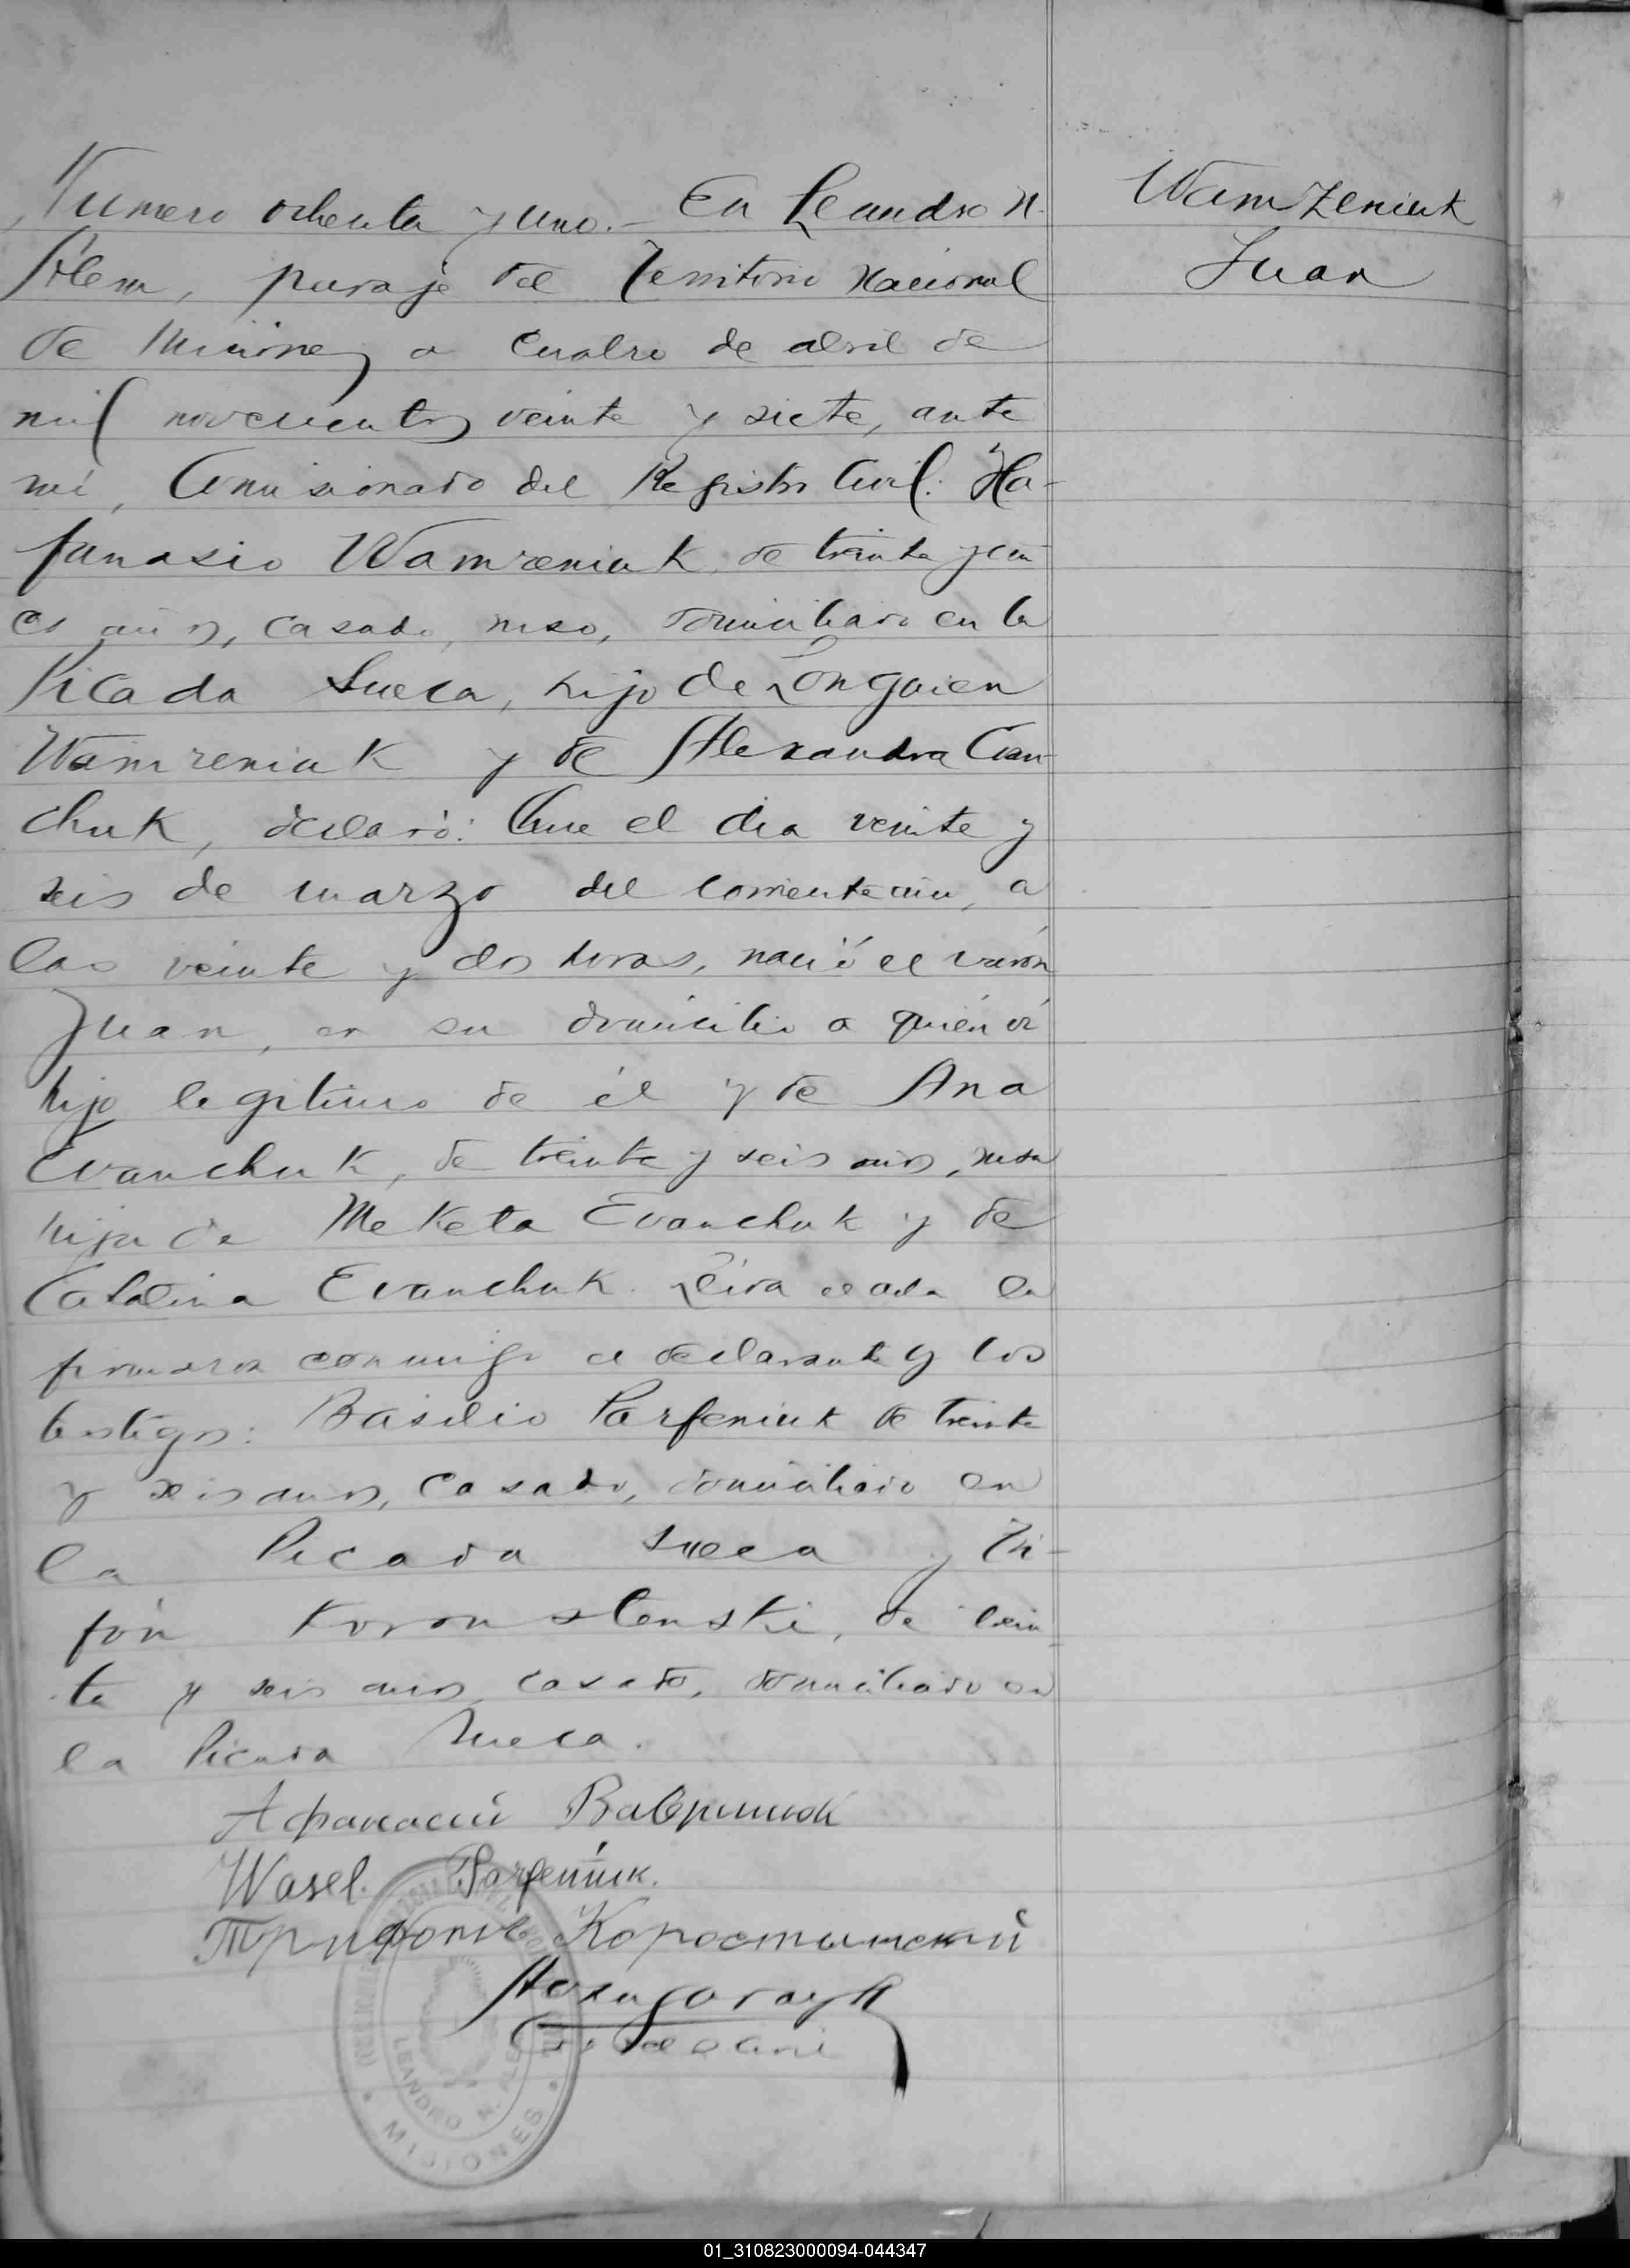 Numero ochenta y uno.- En Leandro N.
Alem, paraje del Territorio Nacional
de Misiones a cuatro de abril de
mil novecientos veinte y siete, ante
mi, Comisionado del Registro Civil: Ha-
fanasio Wamreniuk, de treinta y cin
co años, casado, ruso, domiciliado en la
Picada Sueca, hijo de Longaien
Wamreniuk y de Alexandra Cian-
chuk, declaró: Que el dia veinte y
seis de marzo del corriente año, a
las veinte y dos horas, nació el varón
Juan, en su domicilio a quien vi
hijo legitimo de él y de Ana
Evanchuk, de treinta y seis años, rusa
hija de Meketa Evanchuk y de
Catalina Evanchuk. Leida el acta la
firmaron conmigo el declarante y los
testigos: Basilio Parfeniuk de treinta
y seis años, casado, domiciliado en
la Picada Sueca y Tri-
fón Koronstenski, de trein-
ta y seis años casado, domiciliado en
la Picada Sueca.
Афанасий Вавринюк
Wasel. Parfeniuk.
Трифонъ Коростинский
LEANDRO N. ALEM
MISIONES
Wamzeniuk
Juan
01_310823000094-044347